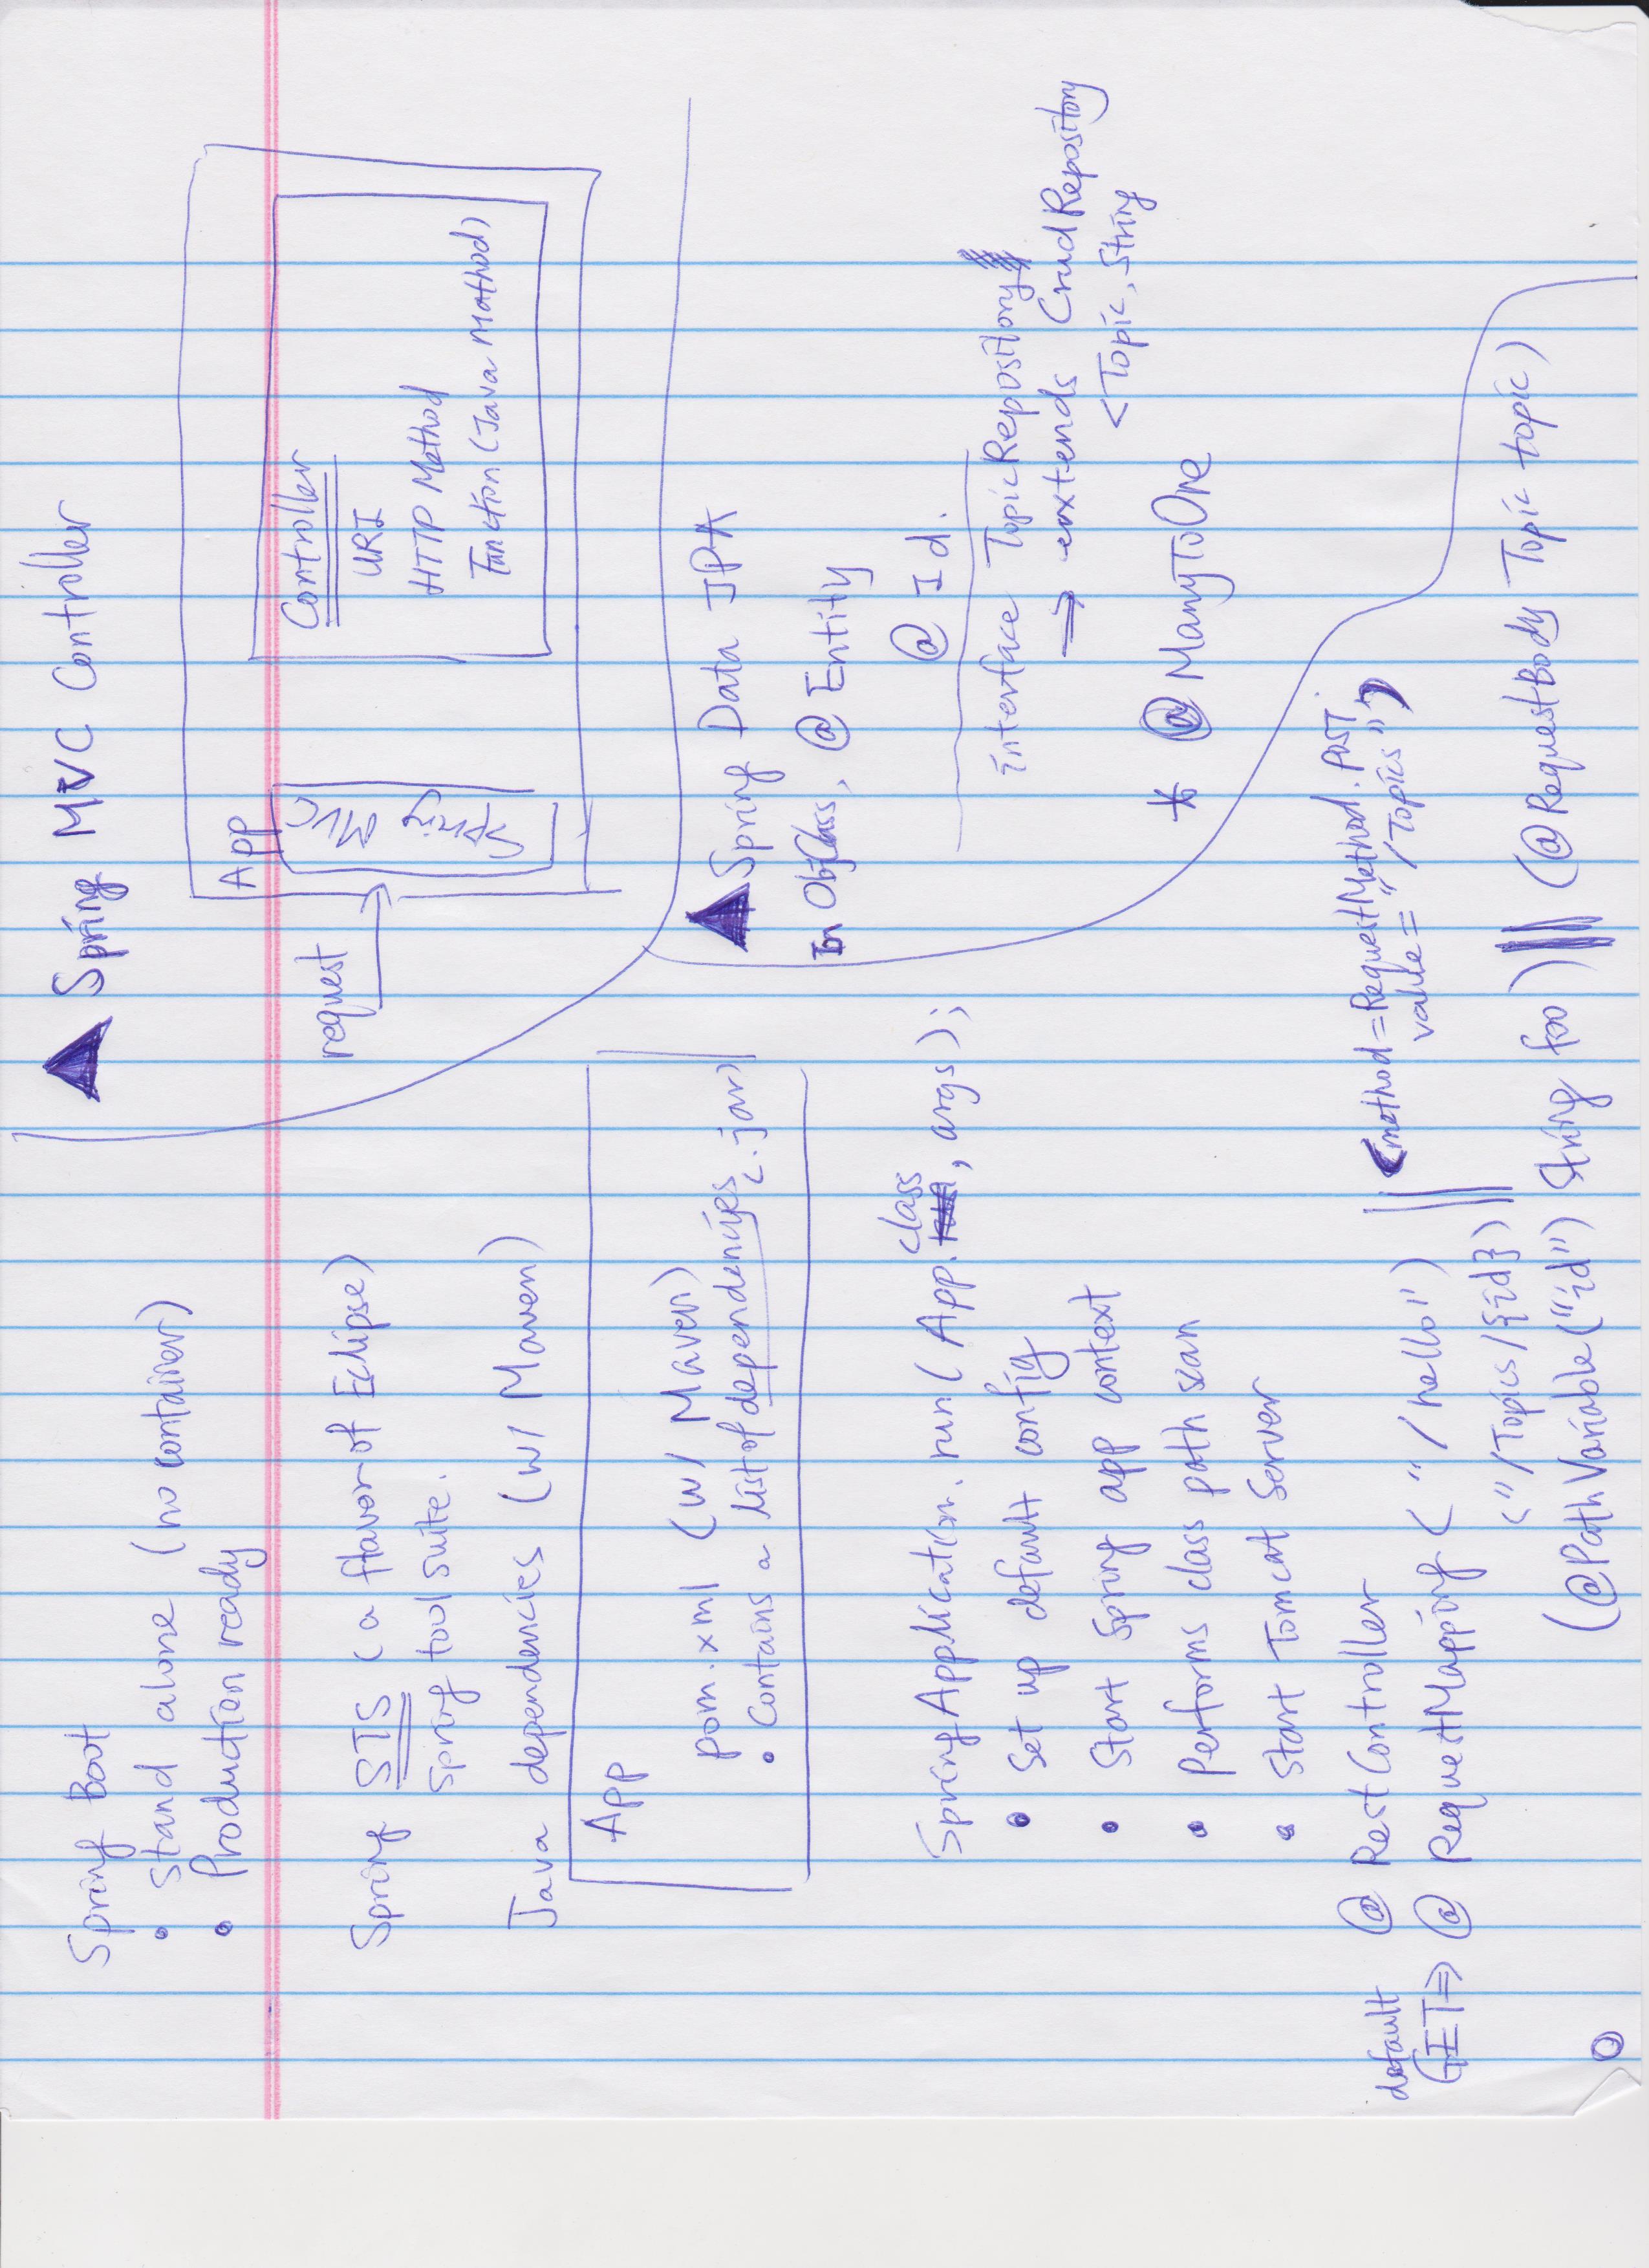 Spring Boot
• stand alone (no container)
• Production ready
Spring STS (a flavor of Eclipse)
spring tool suite.
Java dependencies (w/ Maven)
App
pom.xml (w/ Maven)
• Contains a list of dependencies (.jar)
SpringApplication.run(App.class, args);
• Set up default config
• Start Spring app context
• Performs class path scan
• Start Tomcat Server
@ RestController
default
GET ⇒ @ RequestMapping ("/hello")
("/Topics/{id})
(method=RequestMethod.POST,
value="/Topics")
(@PathVariable("id") String foo) || (@RequestBody Topic topic)
▲ Spring MVC Controller
App
request
Spring MVC
Controller
URI
HTTP Method
Function (Java Mathod)
▲ Spring Data JPA
In ObjClass, @ Entity
@ Id.
interface TopicRepository
⇒ extends CrudRepository
<Topic, String
* @ ManyToOne